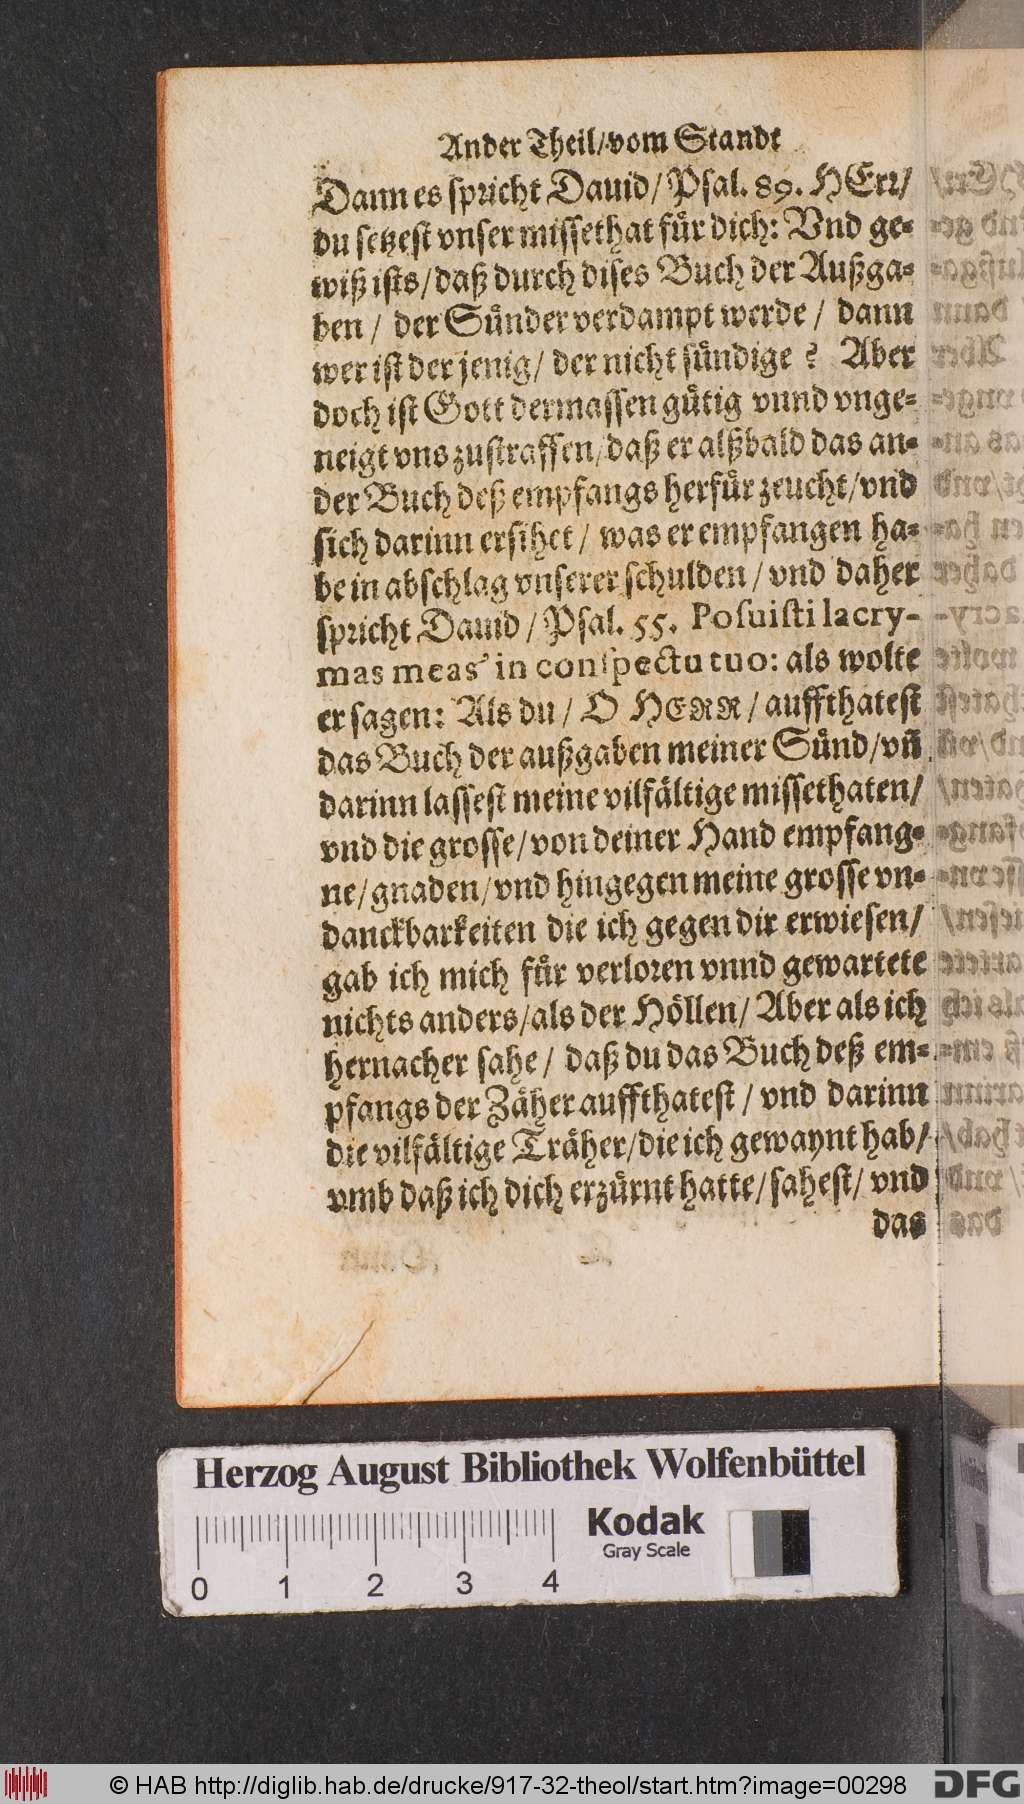 Ander Theil/vom Standt
Dann es spricht Dauid/ Psal. 89. HErr/
du setzest vnser missethat für dich: Vnd ge-
wiß ists/daß durch dises Buch der Außga-
ben/ der Sünder verdampt werde/ dann
wer ist der jenig/ der nicht sündige? Aber
doch ist Gott dermassen gütig vnnd vnge-
neigt vns zustraffen/daß er alßbald das an-
der Buch deß empfangs herfür zeucht/vnd
sich darinn ersihet/ was er empfangen ha-
be in abschlag vnserer schulden/ vnd daher
spricht Dauid/ Psal. 55. Posuisti lacry-
mas meas in conspectu tuo: als wolte
er sagen: Als du/ O HERR/ auffthatest
das Buch der außgaben meiner Sünd/vñ
darinn lassest meine vilfältige missethaten/
vnd die grosse/von deiner Hand empfang-
ne/gnaden/vnd hingegen meine grosse vn-
danckbarkeiten die ich gegen dir erwiesen/
gab ich mich für verloren vnnd gewartete
nichts anders/als der Höllen/ Aber als ich
hernacher sahe/ daß du das Buch deß em-
pfangs der Zäher auffthatest/ vnd darinn
die vilfältige Träher/die ich gewaynt hab/
vmb daß ich dich erzürnt hatte/sahest/ vnd
das
Herzog August Bibliothek Wolfenbüttel
Kodak
Gray Scale
0 1 2 3 4
© HAB http://diglib.hab.de/drucke/917-32-theol/start.htm?image=00298
DFG